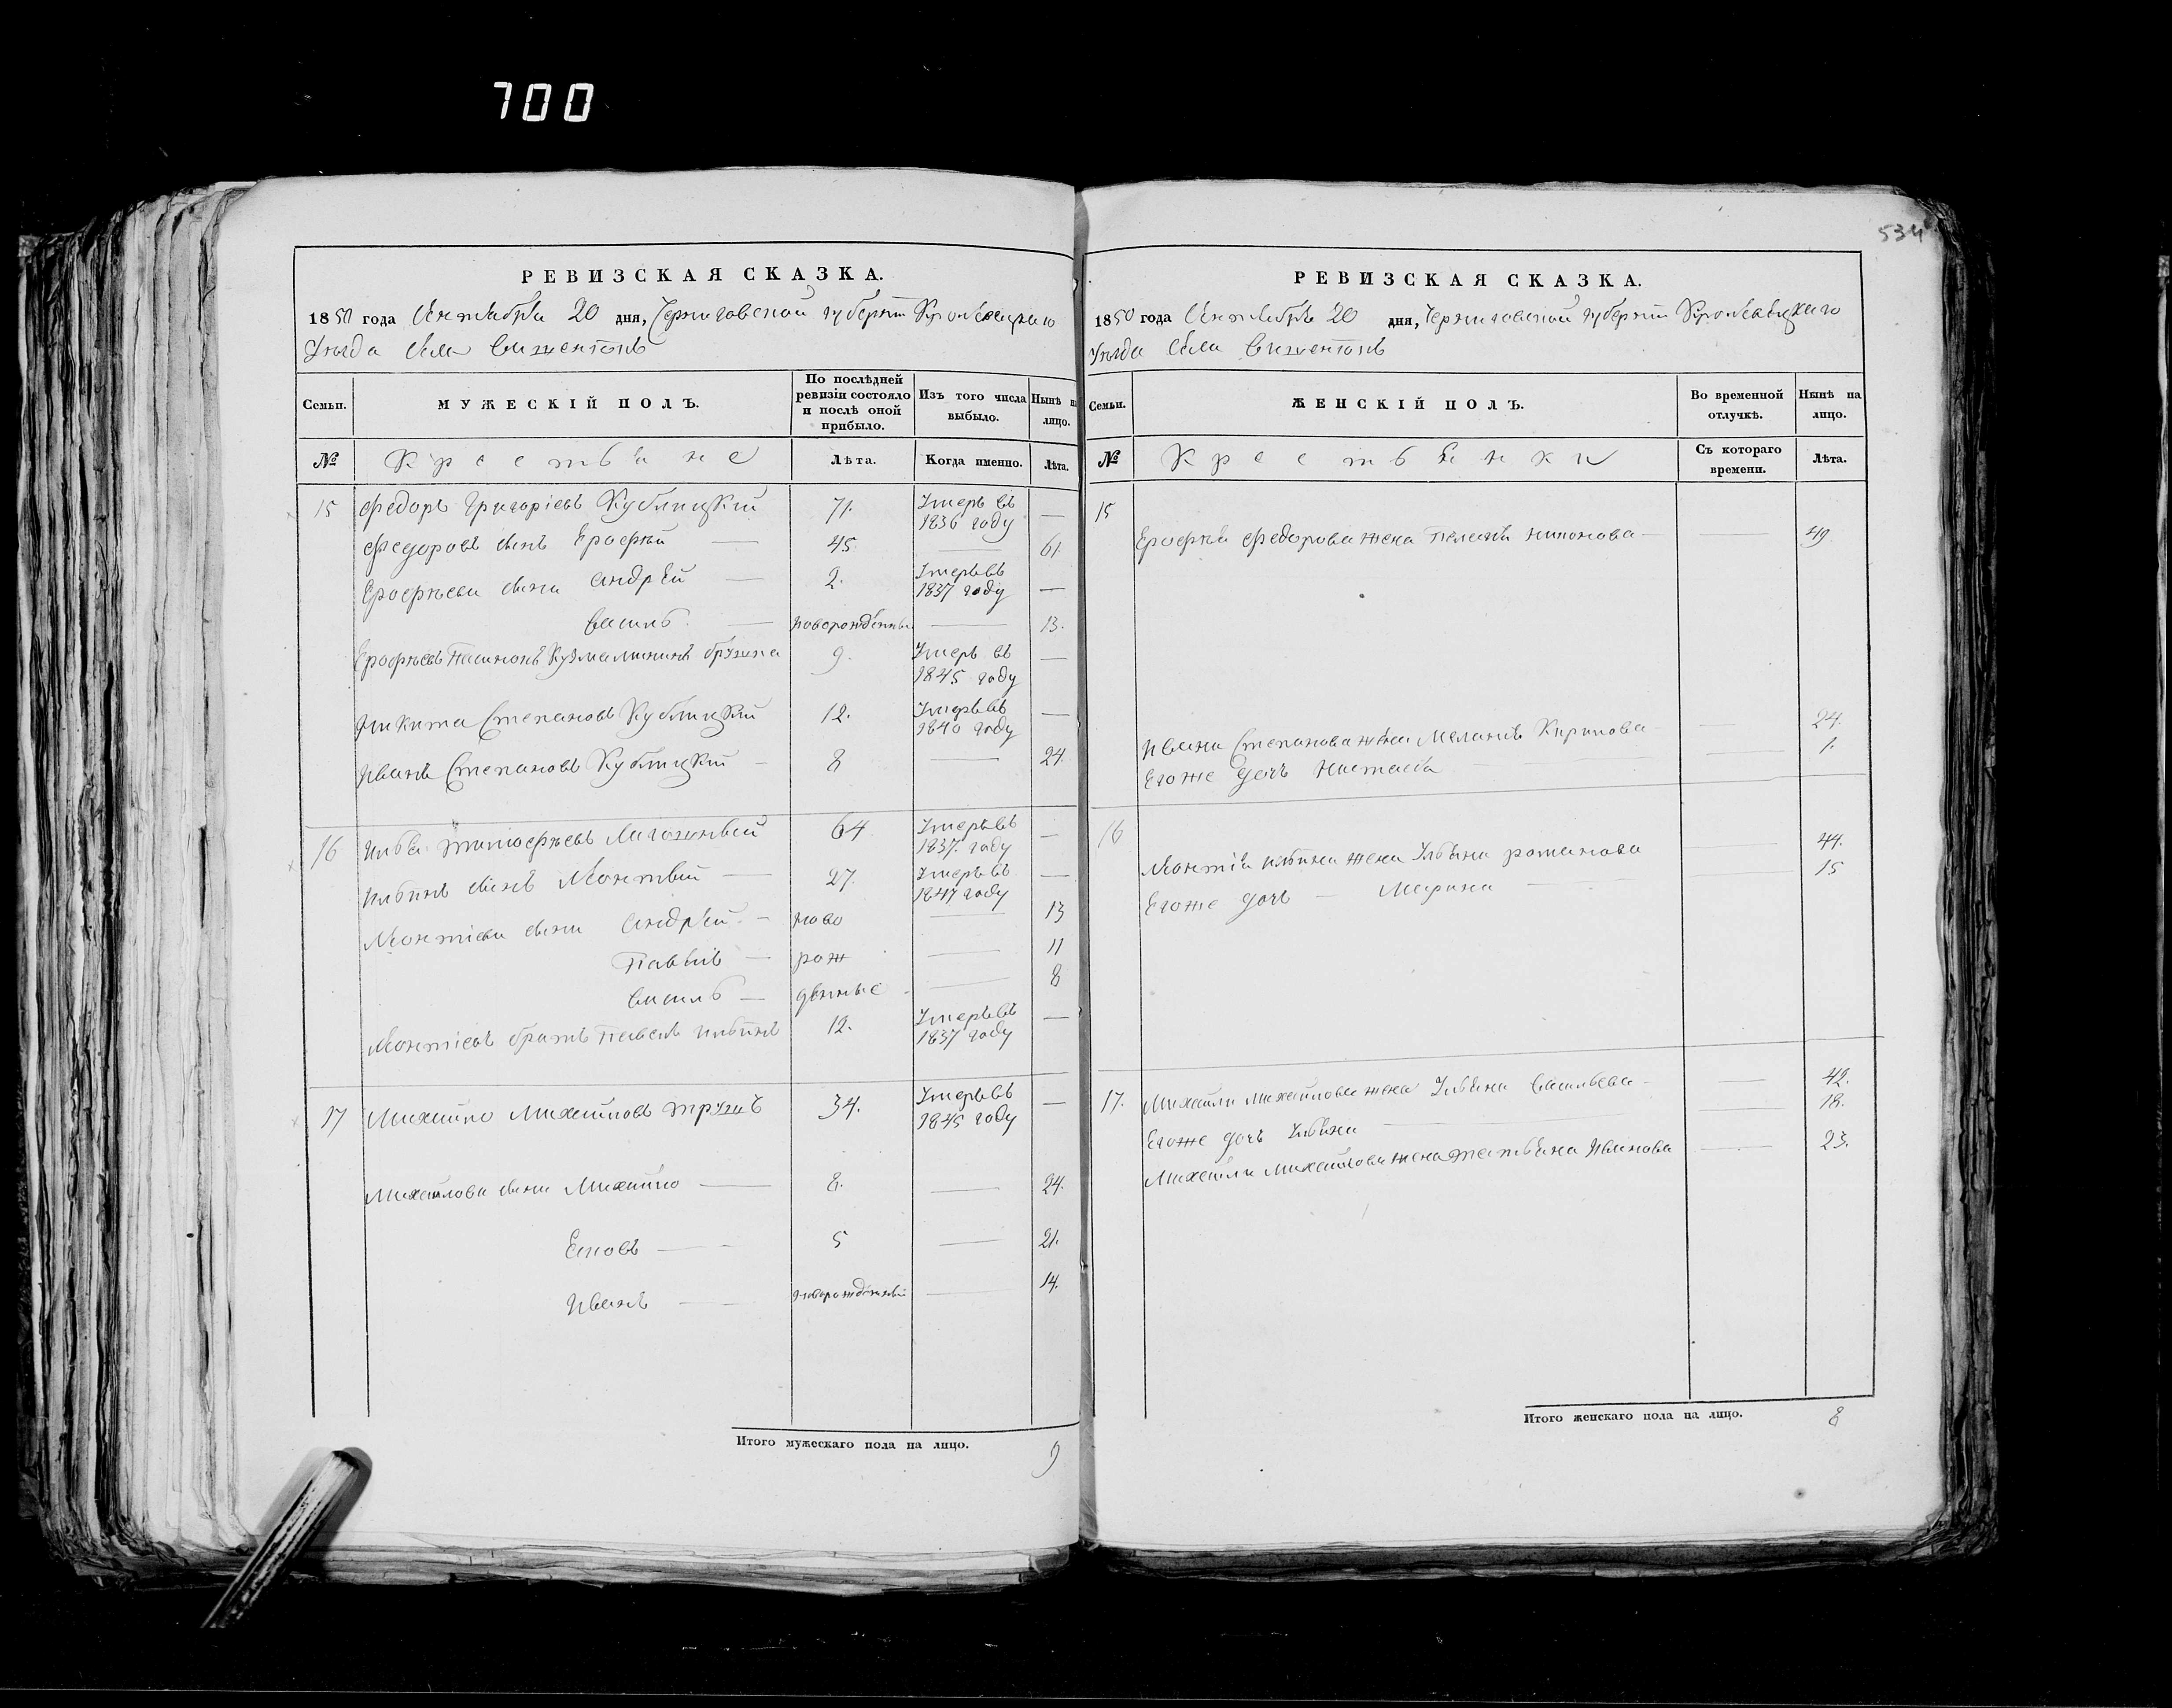 700
534
РЕВИЗСКАЯ СКАЗКА.
1850 года Октября 20 дня, Черниговской губерніи Кролевецкаго
Уезда села
Семьи.
МУЖЕСКІЙ ПОЛЪ.
По послѣдней ревизіи состояло и послѣ оной прибыло.
Изъ того числа выбыло.
Нынѣ на лицо.
№
Крестьяне
Лѣта.
Когда именно.
Лѣта.
15 Федоръ Григоріевъ Кублицкій 71. Умеръ въ 1836 году —
Федоровъ сынъ Ерофей — 45. — 61.
Ерофѣевы сыны Андрей — 2. Умеръ въ 1837 году —
Василь — новорожденный — 13.
Ерофѣевъ 9. Умеръ въ 1845 году —
Никита Степановъ Кублицкій 12. Умеръ въ 1840 году —
Иванъ Степановъ Кублицкій — 8 — 24.
16 Илья 64 Умеръ въ 1837 году —
Ильинъ сынъ — 27. Умеръ въ 1847 году —
сыны Андрей — ново — 13
Павелъ — рож — 11
Василь — денные — 8
братъ Павелъ Ильинъ 12. Умеръ въ 1837 году —
17 Михайло Михайловъ 34. Умеръ въ 1845 году —
Михайловы сыны Михайло — 8. — 24.
5 — 21.
Иванъ — новорожденный — 14.
Итого мужескаго пола на лицо. 9
РЕВИЗСКАЯ СКАЗКА.
1850 года Октября 20 дня, Черниговской губерніи Кролевецкаго
Уезда села
Семьи.
ЖЕНСКІЙ ПОЛЪ.
Во временной отлучкѣ.
Нынѣ на лицо.
№
Крестьянки
Съ котораго времени.
Лѣта.
15
Ерофея Федорова жена — 49
Ивана Степанова жена Меланія Кирилова — 24.
Его же дочь Настасья — 1.
16
Ильина жена Ульяна Романова — 44.
Его же дочь — Марина — 15
17. Михайла Михайлова жена Ульяна Васильева — 42.
Его же дочь Ульяна — 18.
Михайла Михайлова жена Татьяна Иванова — 23.
Итого женскаго пола на лицо. 8